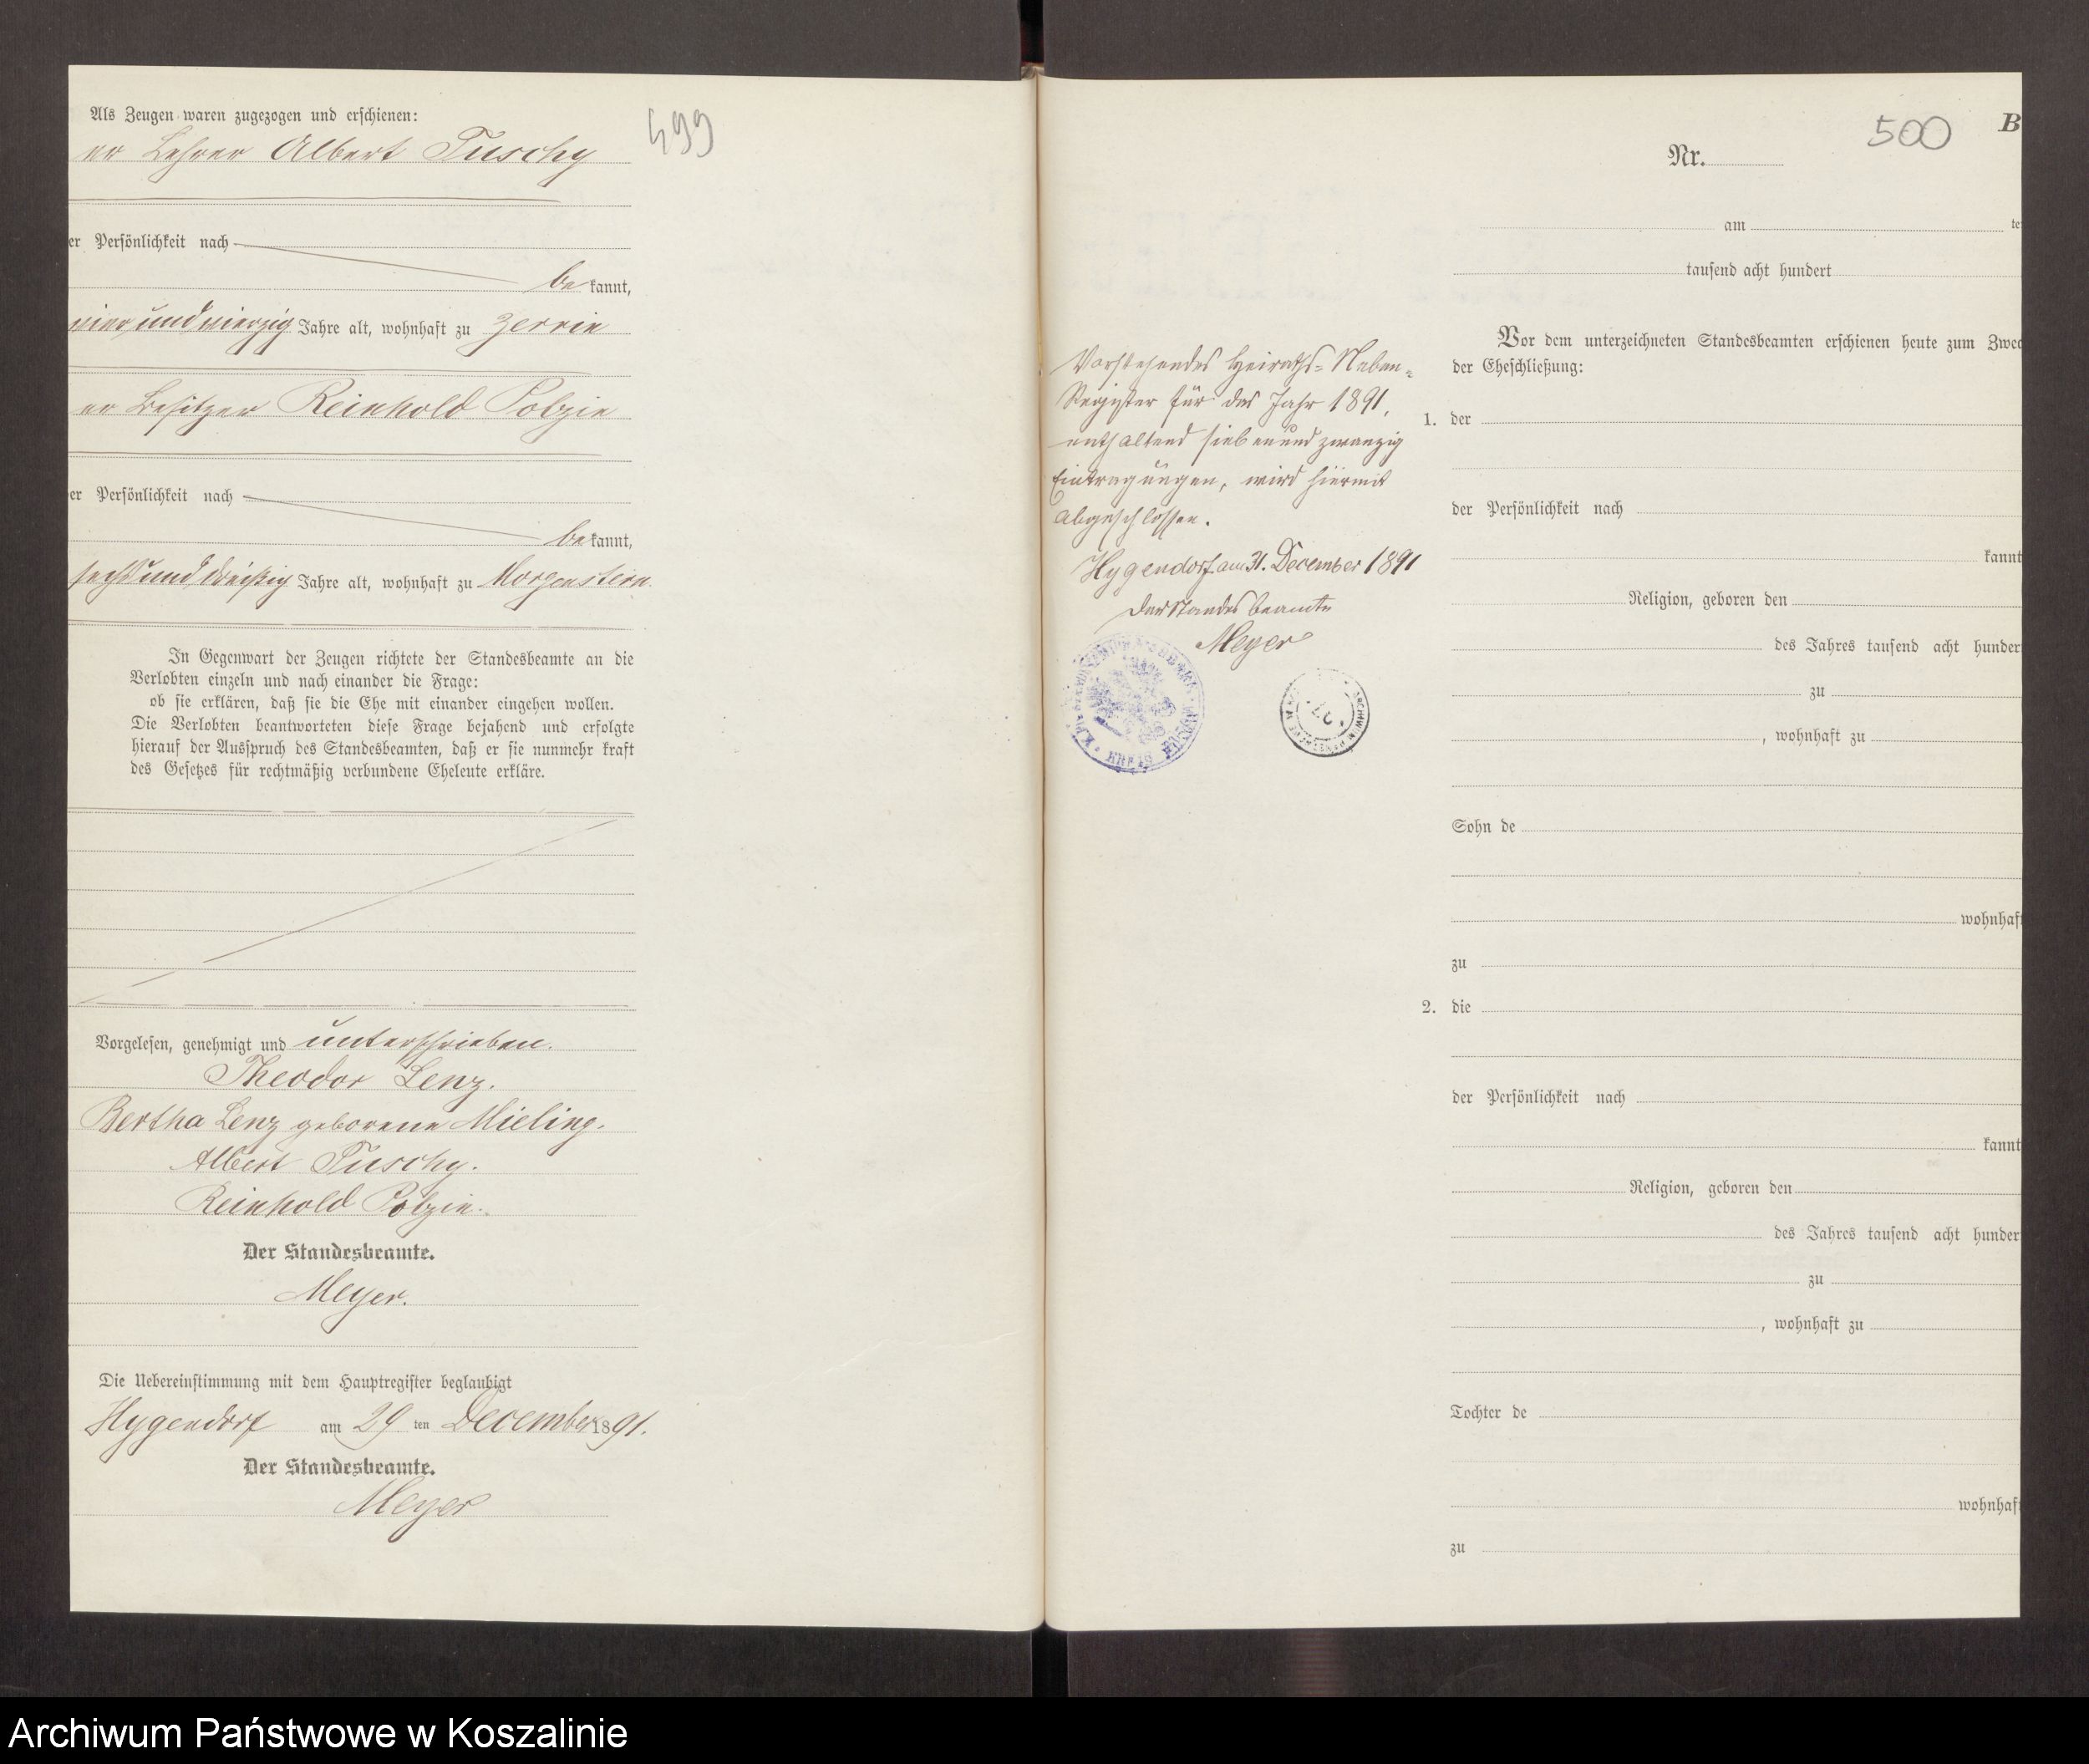 499
Als Zeugen waren zugezogen und erschienen:
er Lehrer Albert Tuschy
er Persönlichkeit nach
be kannt,
vier und vierzig Jahre alt, wohnhaft zu Zerrin
er Besitzer Reinhold Polzin
er Persönlichkeit nach
be kannt,
sechs und dreißig Jahre alt, wohnhaft zu Morgenstern
In Gegenwart der Zeugen richtete der Standesbeamte an die
Verlobten einzeln und nach einander die Frage:
ob sie erklären, daß sie die Ehe mit einander eingehen wollen.
Die Verlobten beantworteten diese Frage bejahend und erfolgte
hierauf der Ausspruch des Standesbeamten, daß er sie nunmehr kraft
des Gesetzes für rechtmäßig verbundene Eheleute erkläre.
Vorgelesen, genehmigt und unterschrieben.
Theodor Lenz.
Bertha Lenz geborene Mieling.
Albert Tuschy.
Reinhold Polzin.
Der Standesbeamte.
Meyer.
Die Uebereinstimmung mit dem Hauptregister beglaubigt
Hygendorf am 29 ten December 1891.
Der Standesbeamte.
Meyer
Vorstehendes Heiraths-Neben-
Register für das Jahr 1891,
enthaltend siebenundzwanzig
Eintragungen, wird hiermit
abgeschlossen.
Hygendorf am 31. December 1891
Der Standesbeamte
Meyer
KREIS
500
B
Nr.
am te
tausend acht hundert
Vor dem unterzeichneten Standesbeamten erschienen heute zum Zwec
der Eheschließung:
1. der
der Persönlichkeit nach
kannt
Religion, geboren den
des Jahres tausend acht hunder
zu
, wohnhaft zu
Sohn de
wohnhaft
zu
2. die
der Persönlichkeit nach
kannt
Religion, geboren den
des Jahres tausend acht hunder
zu
, wohnhaft zu
Tochter de
wohnhaft
zu
Archiwum Państwowe w Koszalinie